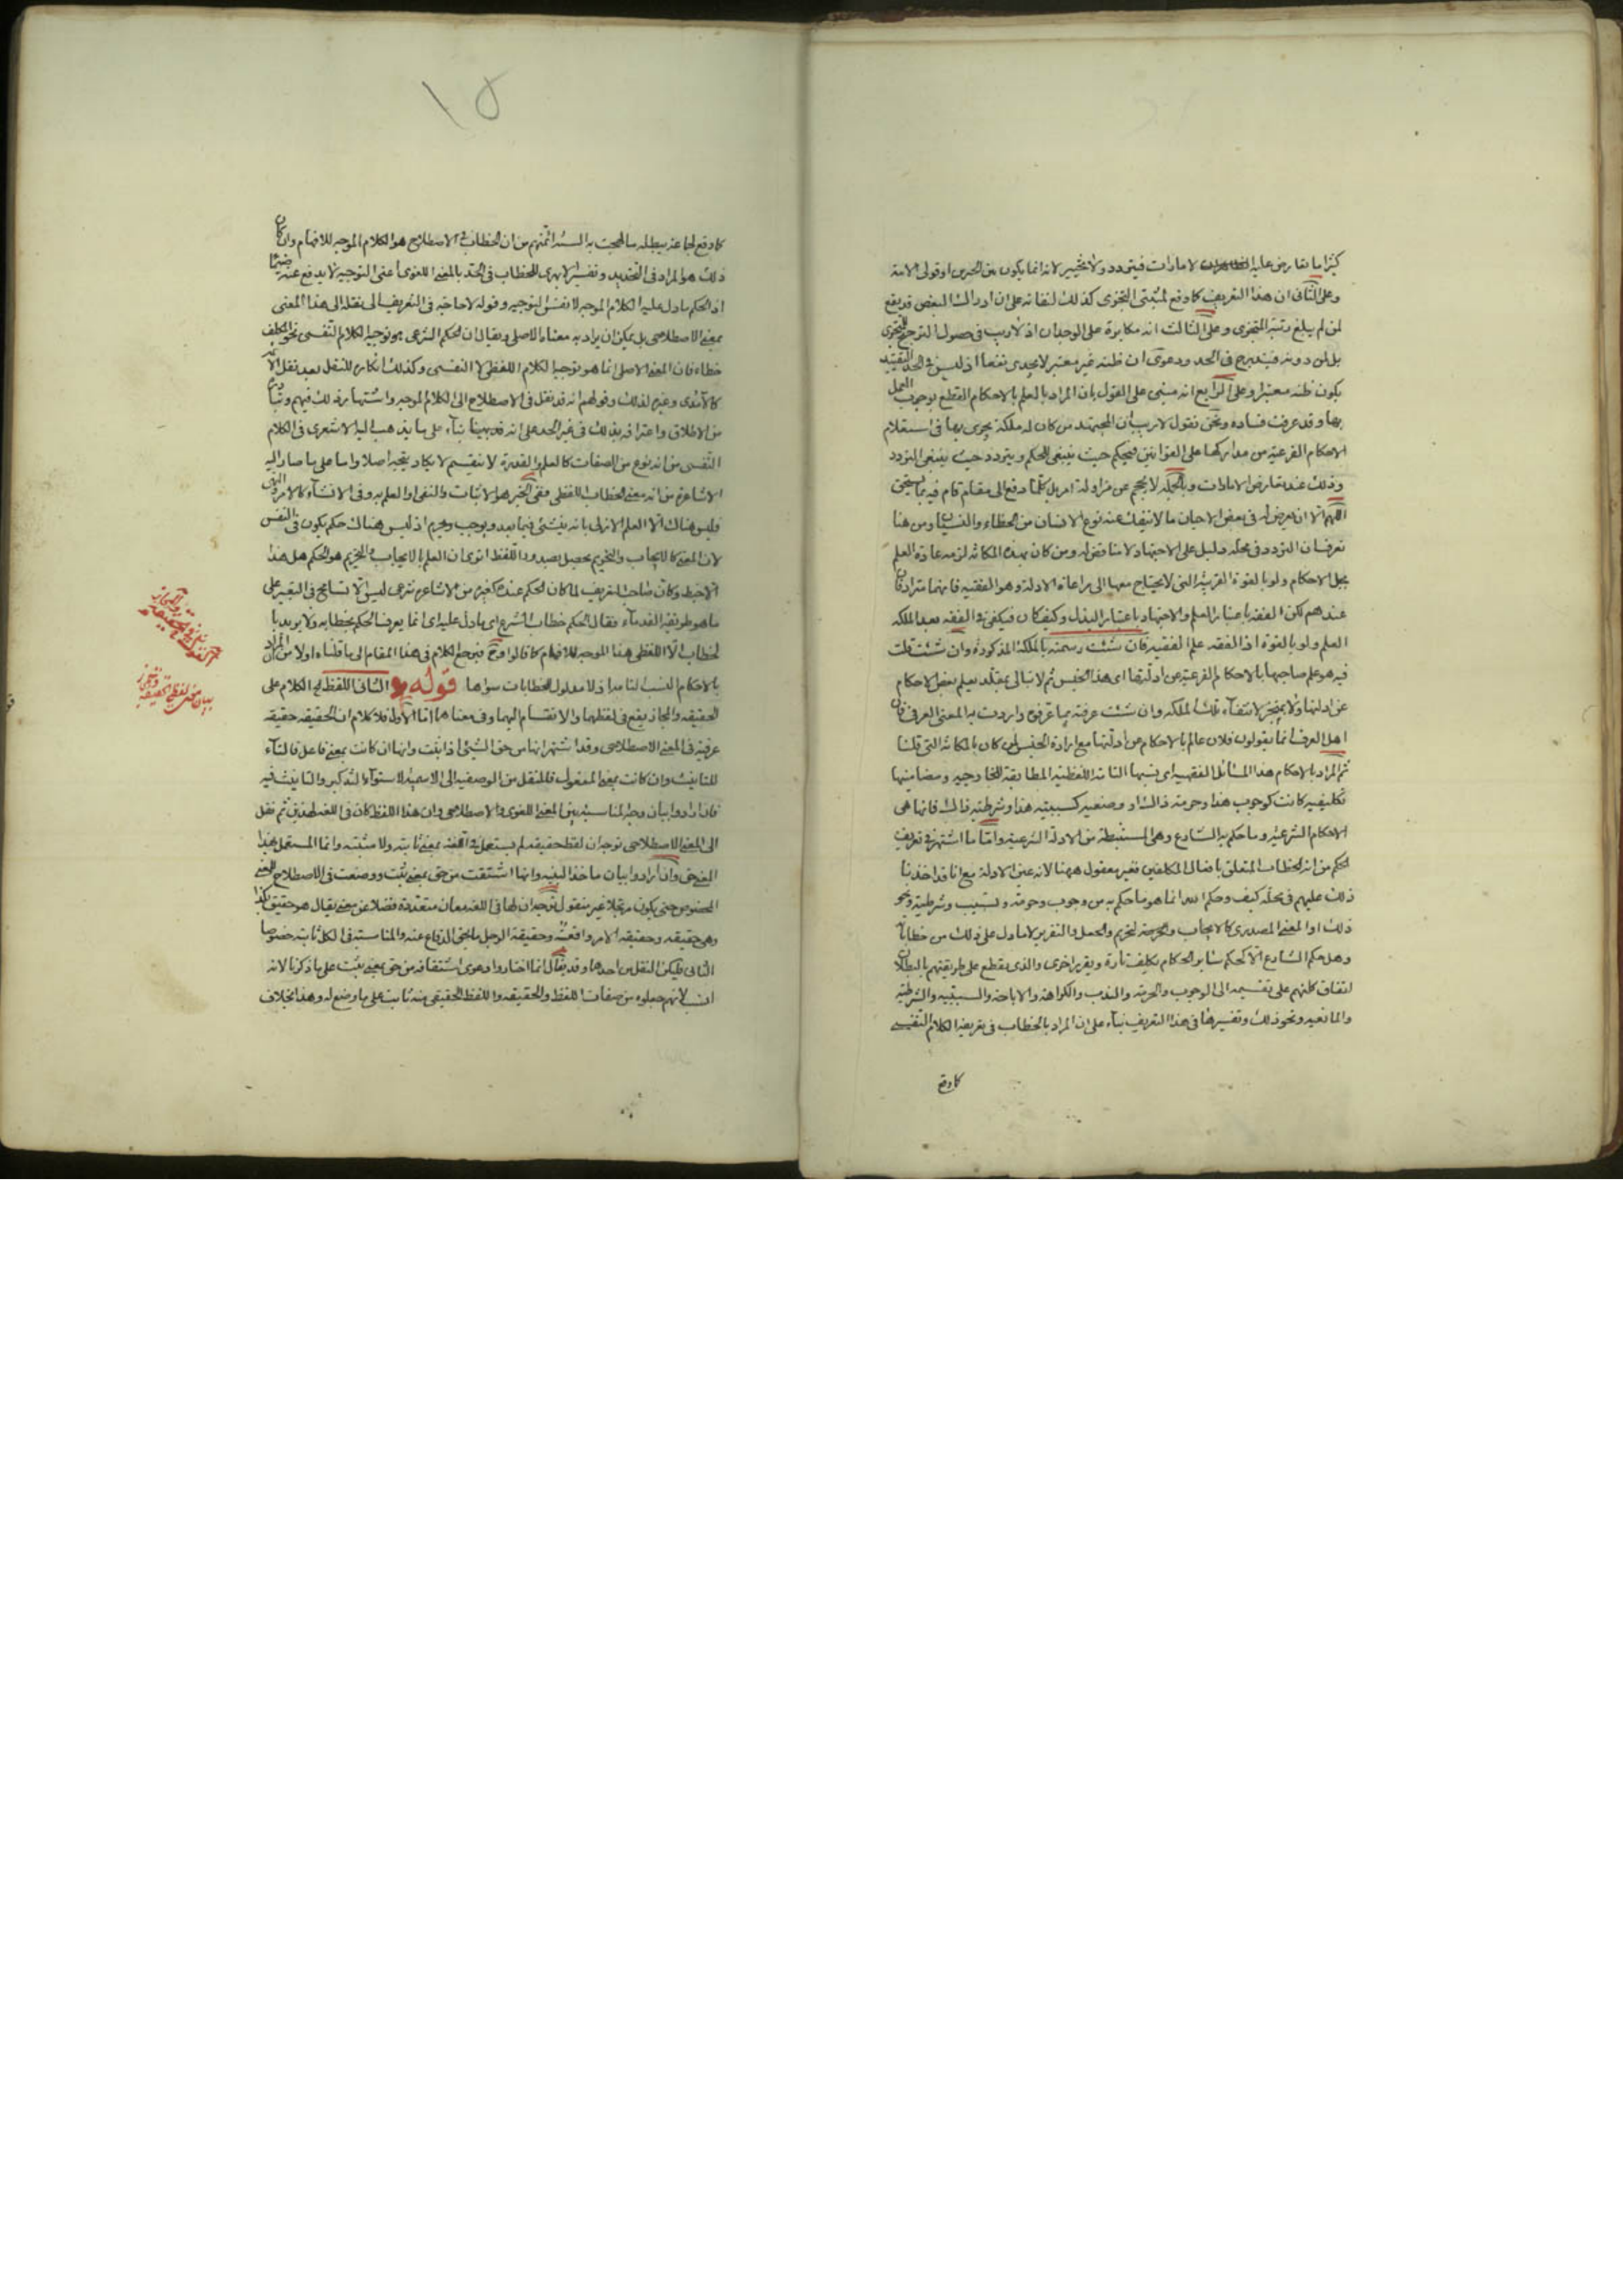 كثيرا ما يتعارض عليه الامارات فيتردد ولا تخيير لانه انما يكون بين الخبرين او قولى الامة
وعلى الثانى ان هذا التعريف كما وقع لمثبتى التجزى كذلك لنفاته على ان ادراك البعض قد يقع
لمن لم يبلغ رتبة التجزى وعلى الثالث انه مكابرة على الوجدان اذ لا ريب فى حصول الترجيح للمتجزى
بل لمن دونه فيندرج فى الحد ودعوى ان ظنه غير معتبر لا يجدى نفعا اذ ليس فى الحد التقييد
بكون ظنه معتبرا وعلى الرابع انه مبنى على القول بان المراد بالعلم بالاحكام القطع بوجوب العمل
بها وقد عرفت فساده ونحن نقول لا ريب ان المجتهد من كان له ملكة يجرى بها فى استعلام
الاحكام الفرعية من مداركها على القوانين فيحكم حيث ينبغى الحكم ويتردد حيث ينبغى التردد
وذلك عند تعارض الامارات وبالجملة لا يحجم عن مزاولة امر بل كلما دفع الى مقام قام فيه بما ينبغى
اللهم الا ان يعرض له فى بعض الاحيان ما لا ينفك عنه نوع الانسان من الخطاء والنسيان ومن هنا
تعرف ان التردد فى محله دليل على الاجتهاد لا مناقض له ومن كان بهذه المكانة لزمه عادة العلم
بجل الاحكام ولو بالقوة القريبة التى لا يحتاج معها الى مراعاة الادلة وهو الفقيه فانهما مترادفان
عندهم لكن الفقه باعتبار العلم والاجتهاد باعتبار البذل وكيف كان فيكفى فى الفقه بعد الملكه
العلم ولو بالقوة اذ الفقه علم الفقيه فان شئت رسمته بالملكة المذكورة وان شئت قلت
فيه هو علم صاحبها بالاحكام الفرعية عن ادلتها اى هذا الجنس ثم لا تبالى بمقلد يعلم بعض الاحكام
عن ادلتها ولا بمتجز لانتفاء تلك الملكه وان شئت عرفته بما عرفوه واردت به المعنى العرفى فان
اهل العرف انما يقولون فلان عالم بالاحكام عن ادلتها مع ارادة الجنس لمن كان بالمكانة التى قلنا
ثم المراد بالاحكام هذا المسائل الفقهيه اى نسبها التامة اللفظية المطابقة للخارجيه ومضامينها
تكليفيه كانت كوجوب هذا وحرمة ذاك او وضعيه كسببيه هذا وشرطيه ذاك فانما هى
الاحكام الشرعيه وما حكم به الشارع وهى المستنبطة من الادلة الشرعيه واما ما اشتهر فى تعريف
الحكم من انه الخطاب المتعلق بافعال المكلفين فغير معقول ههنا لانه عين الادلة مع انا قد اخذنا
ذلك عليهم فى محله كيف وحكم الله انما هو ما حكم به من وجوب وحرمة وتسبب وشرطية ونحو
ذلك او المعنى المصدرى كالايجاب والتحريم والجعل والتقرير لا ما دل على ذلك من خطاباته
وهل حكم الشارع الا كحكم سائر الحكام تكليف تارة وتقرير اخرى والذى يقطع على طريقتهم بالبطلان
اتفاق كلمتهم على تقسيمه الى الوجوب والحرمة والندب والكراهة والاباحة والسببيه والشرطية
والمانعيه ونحو ذلك وتفسيرها فى هذا التعريف بناء على ان المراد بالخطاب فى تعريفه الكلام النفسى
كما وقع
١٥
كما وقع لجماعة يبطله ما لهجت به السنة ائمتهم من ان الخطاب فى الاصطلاح هو الكلام الموجه للافهام وان كان
ذلك هو المراد فى التحديد وتفسير الابهرى للخطاب فى الحد بالمعنى اللغوى اعنى التوجيه لا يدفع عنه ضيما
اذ الحكم ما دل عليه الكلام الموجه لا نفس التوجيه وقوله لا حاجة فى التعريف الى نقله الى هذا المعنى
بمعنى الاصطلاحى بل يمكن ان يراد به معناه الاصلى ويقال ان الحكم الشرعى هو توجيه الكلام النفسى نحو المكلف
خطاء فان المعنى الاصلى انما هو توجيه الكلام اللفظى لا النفسى وكذلك انكاره للنقل بعد نقل الائمة
كالآمدى وغيره لذلك وقولهم انه قد نقل فى الاصطلاح الى الكلام الموجه واشتهار ذلك فيهم وتبادره
من الاطلاق واعترافه بذلك فى غير الحد على انه قد يبنى بناء على ما يذهب اليه الاشعرى فى الكلام
النفسى من انه نوع من الصفات كالعلم والقدرة لا ينقسم لا يكاد يتجه اصلا واما على ما صار اليه
الاشاعرة من انه معنى الخطاب اللفظى ففى الخبر هو الاثبات والنفى او العلم به وفى الانشاء كالامر والنهى
فليس هناك الا العلم الازلى بانه ينشئ فيما بعد ويوجب ويحرم اذ ليس هناك حكم يكون فى النفس
لان المعنى كالايجاب والتحريم يحصل بصدور اللفظ اترى ان العلم بالايجاب والتحريم هو الحكم هل هذا
الا خبط وكان صاحب التعريف لما كان الحكم عنده كغيره من الاشاعره شرعى ليس الا تسامح فى التعبير على
ما هو طريقة القدماء فقال الحكم خطاب الشرع اى ما دل عليه اى انما يعرف الحكم بخطابه ولا يريد با
لخطاب الا اللفظى هنا الموجه للافهام كما قالوا وح فيرجع الكلام فى هذا المقام الى ما قلناه اولا من ان المراد
بالاحكام النسب التامة اذ لا مدلول للخطابات سواها قوله الثانى اللفظ الخ الكلام على
الحقيقه والمجاز يقع فى لفظهما والانقسام اليهما وفى معناهما اما الاول فلا كلام ان الحقيقه حقيقه
عرفية فى المعنى الاصطلاحى وقد اشتهر انها من حق الشيئ اذا ثبت وانها ان كانت بمعنى فاعل فالتاء
للتانيث وان كانت بمعنى المفعول فللنقل من الوصفيه الى الاسميه لاستواء التذكير والتانيث فيه
فان ارادوا بيان وجه المناسبة بين المعنى اللغوى والاصطلاحى وان هذا اللفظ كان فى اللغه لهذين ثم نقل
الى المعنى الاصطلاحى توجه ان لفظ حقيقه لم يستعمل فى اللغة بمعنى ثابته ولا مثبتة وانما المستعمل بهذا
المعنى حق وان ارادوا بيان ماخذ البنيه وانما اشتقت من حق بمعنى ثبت ووضعت فى الاصطلاح للمعنى
المخصوص حتى يكون مرتجلا غير منقول توجه ان لها فى اللغة معان متعددة فضلا عن معنى يقال هو حقيق بكذا
وهى حقيقه وحقيقه الامر واقعته وحقيقة الرجل ما يحق الدفاع عنه والمناسبة فى الكل ثابته خصوصا
الثانى فليكن النقل من احدها وقد يقال انما اختاروا دعوى اشتقاقه من حق بمعنى ثبت على ما ذكرنا لانه
انسب لانهم جعلوه من صفات اللفظ والحقيقه واللفظ الحقيقى منه ثابت على ما وضع له وهذا بخلاف